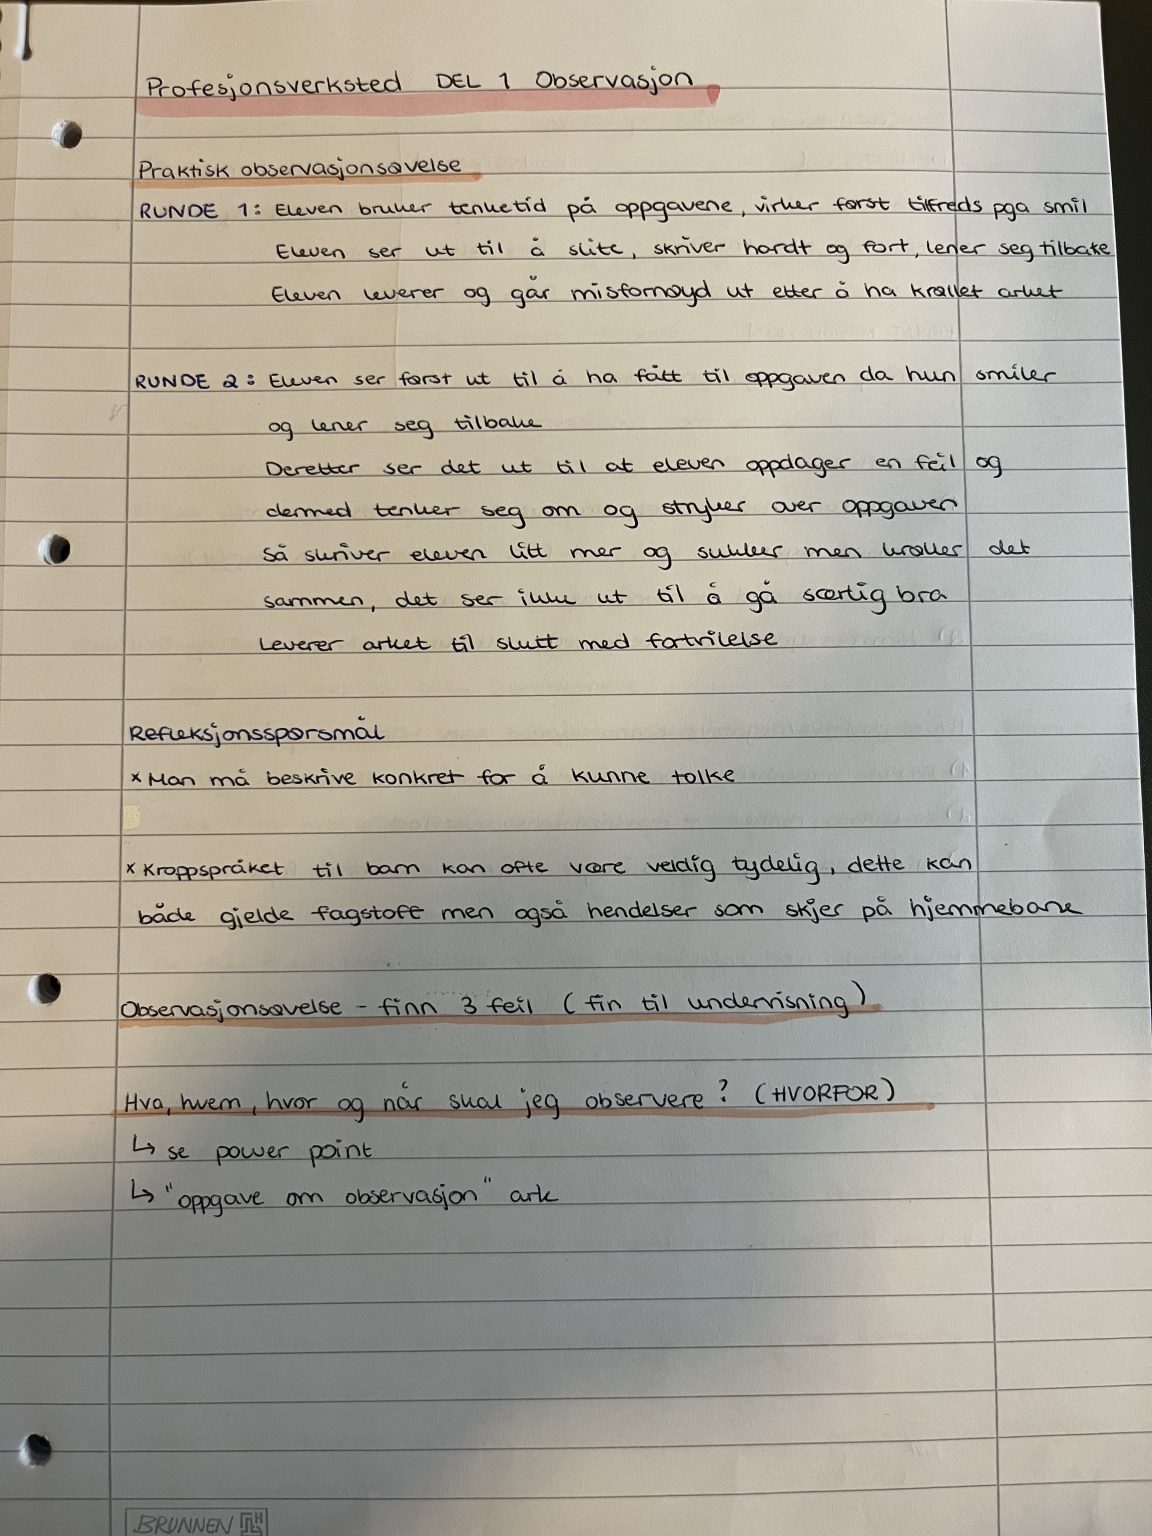 Profesjonsverksted DEL 1 Observasjon
Praktisk observasjonsøvelse
RUNDE 1: Eleven bruker tenketid på oppgavene, virker først tilfreds pga smil
Eleven ser ut til å slite, skriver hardt og fort, lener seg tilbake
Eleven leverer og går misfornøyd ut etter å ha krøllet arket
RUNDE 2: Eleven ser først ut til å ha fått til oppgaven da hun smiler
og lener seg tilbake
Deretter ser det ut til at eleven oppdager en feil og
dermed tenker seg om og stryker over oppgaven
Så skriver eleven litt mer og sukker men krøller det
sammen, det ser ikke ut til å gå særlig bra
Leverer arket til slutt med fortvilelse
Refleksjonsspørsmål
x Man må beskrive konkret for å kunne tolke
x Kroppspråket til barn kan ofte være veldig tydelig, dette kan
både gjelde fagstoff men også hendelser som skjer på hjemmebane
Observasjonsøvelse - finn 3 feil (fin til undervisning)
Hva, hvem, hvor og når skal jeg observere? (HVORFOR)
↳ se power point
↳ "oppgave om observasjon" ark
BRUNNEN